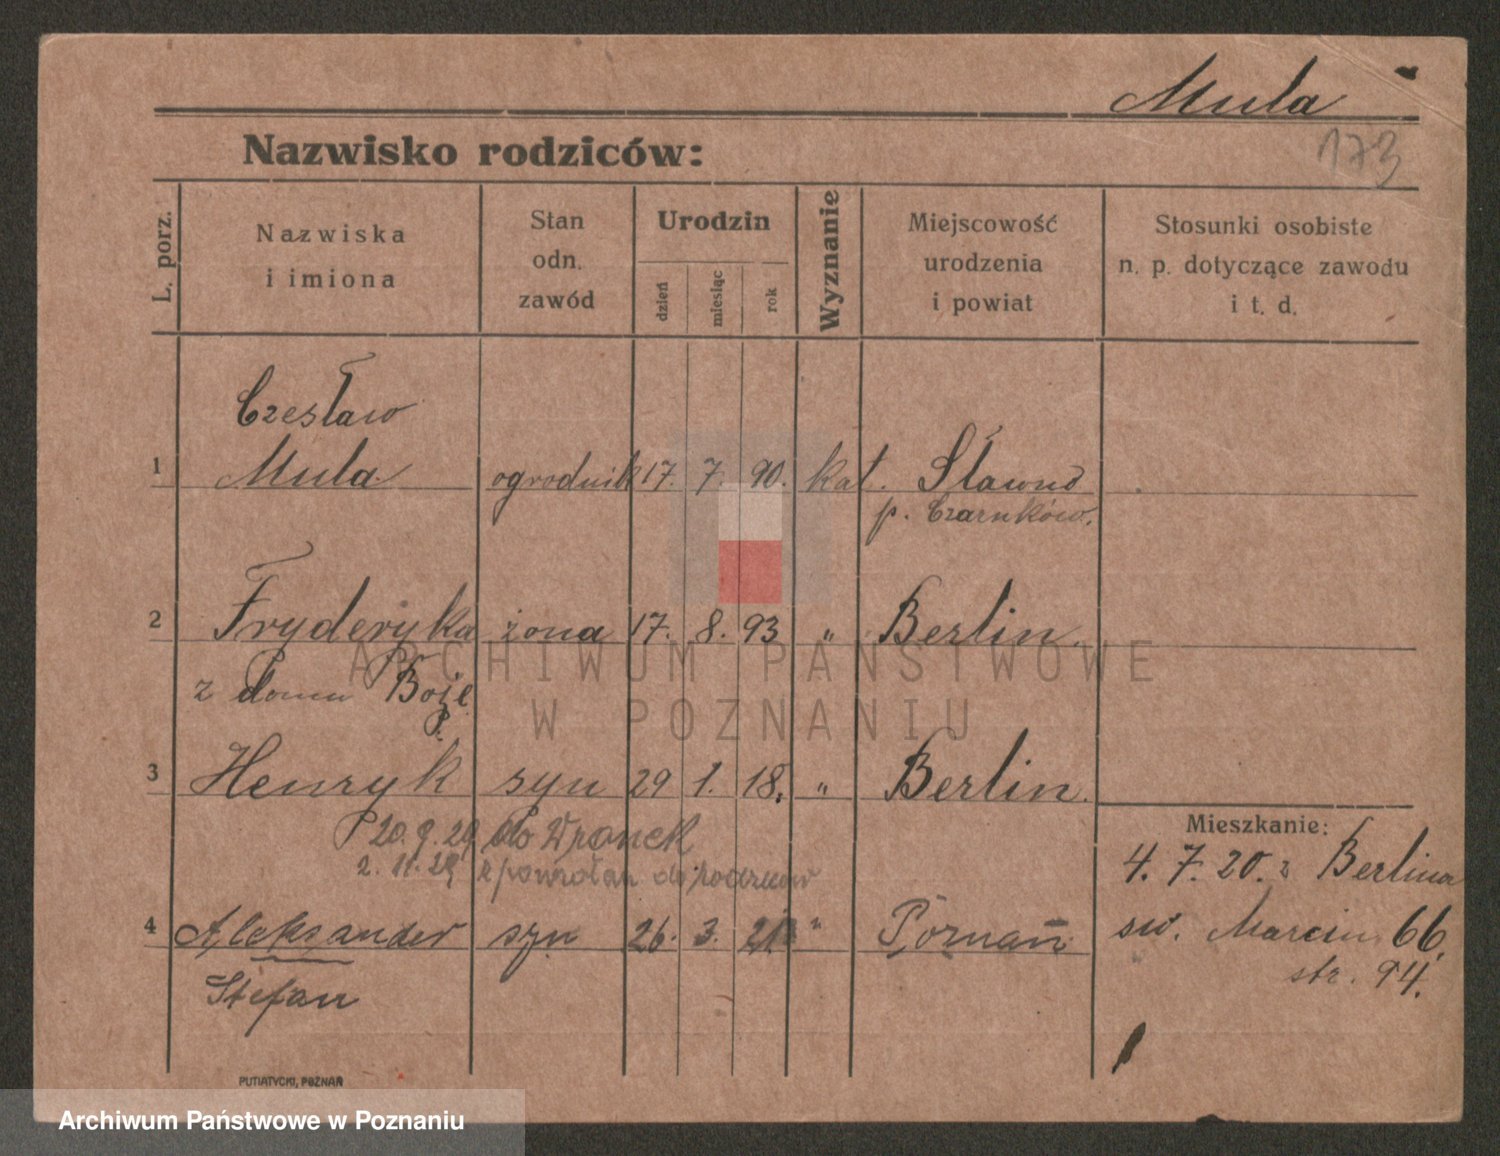 Mula
173
Nazwisko rodziców:
L. porz.
Nazwiska
i imiona
Stan
odn.
zawód
Urodzin
dzień
miesiąc
rok
Wyznanie
Miejscowość
urodzenia
i powiat
Stosunki osobiste
n. p. dotyczące zawodu
i t. d.
Czesław
1 Mula ogrodnik 17. 7. 90. kat. Sławno
p. Czarnków.
2 Fryderyka żona 17. 8. 93 " Berlin
z domu Boże
3 Henryk syn 29 1. 18. " Berlin.
20. 9. 29 do Wronek
2. 11. 29 do
Mieszkanie:
4. 7. 20. z Berlina
4 Aleksander syn 26. 3. 21 " Poznań
św. Marcin 66.
str. 94.
Stefan
PUTIATYCKI, POZNAŃ
ARCHIWUM PAŃSTWOWE
W POZNANIU
Archiwum Państwowe w Poznaniu